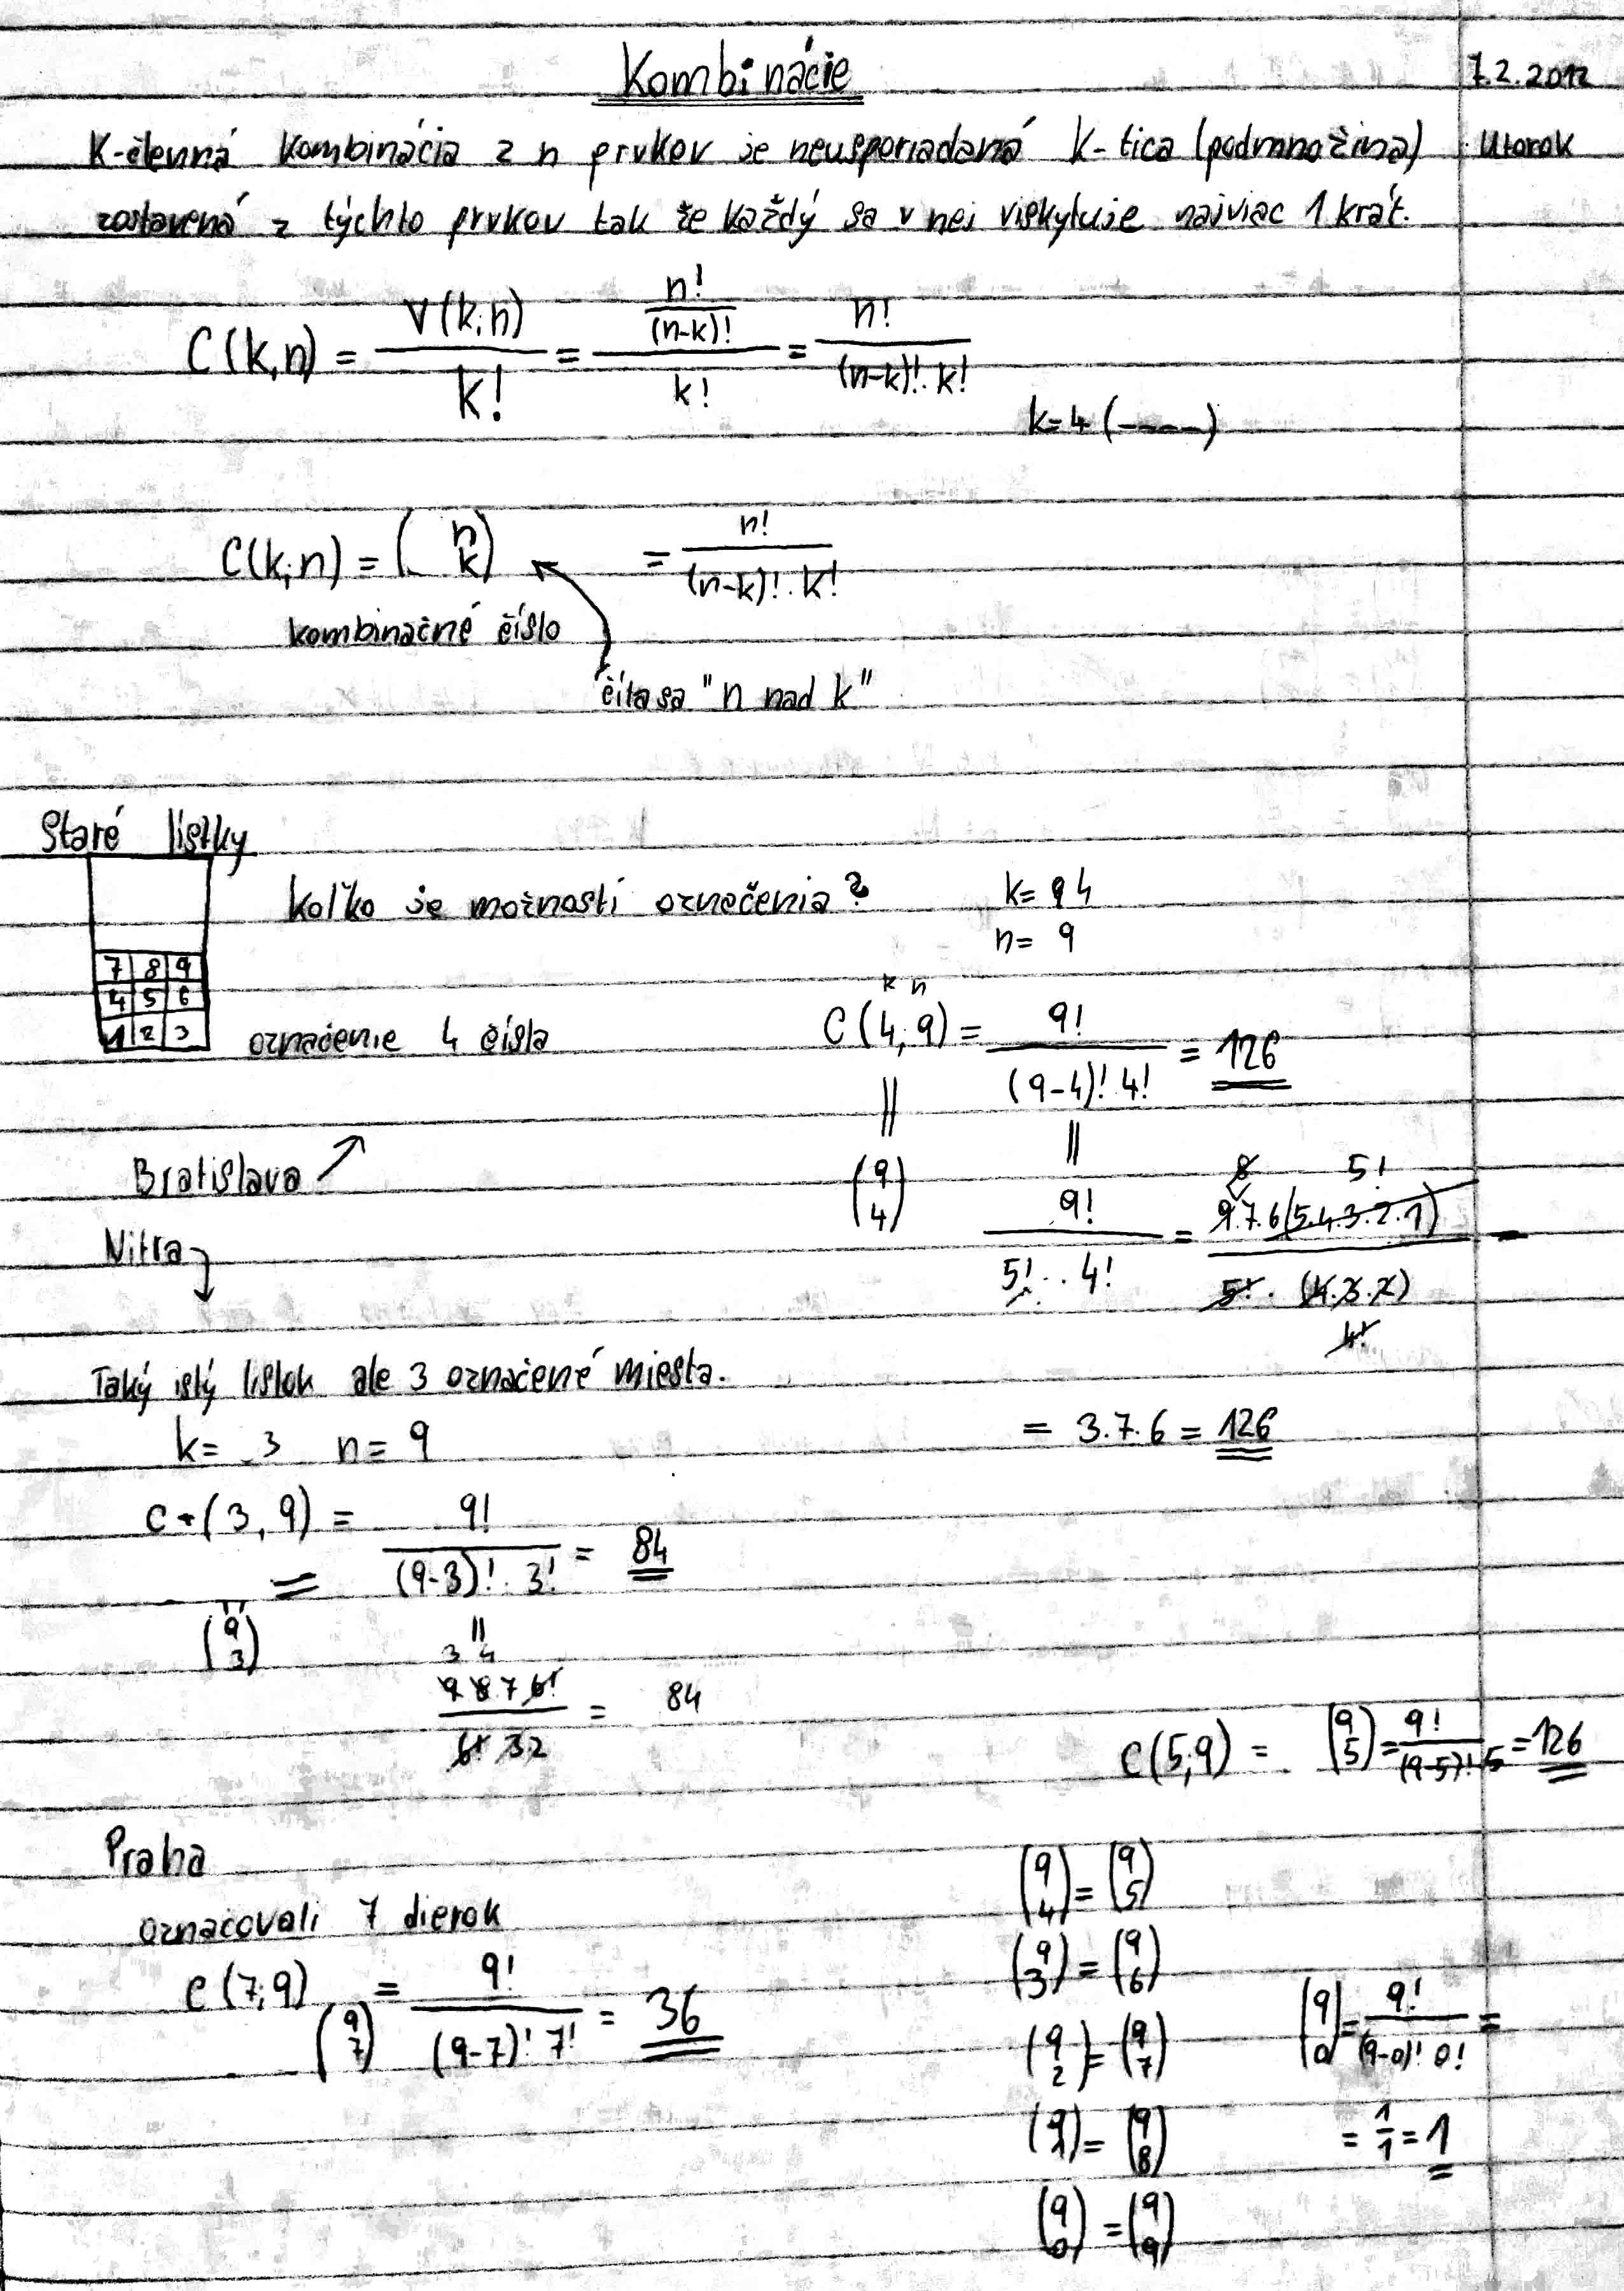 Kombinácie
7.2.2012
K-členná kombinácia z n prvkov je neusporiadaná k-tica (podmnožina)
Utorok
zostavená z týchto prvkov tak že každý sa v nej viskytuje najviac 1 krát.
C(k,n) = V(k;n)/k! = (n!/(n-k)!)/k! = n!/((n-k)!.k!)
k=4 (----)
C(k;n) = (n k) = n!/((n-k)!.k!)
kombinačné číslo
číta sa "n nad k"
Staré lístky
Koľko je možností označenia?
k= 9 4
n= 9
7 8 9
4 5 6
1 2 3
označenie 4 čísla
k n
C(4,9) = 9!/((9-4)! 4!) = 126
||
||
Bratislava
(9 4)
8 5!
9!/(5! . 4!) = 9.7.6(5.4.3.2.1)/(5! . (4.3.2)) =
4!
Nitra
Taký istý lístok ale 3 označené miesta.
= 3.7.6 = 126
k= 3 n= 9
C (3,9) = 9!/((9-3)! . 3!) = 84
=
||
(9 3)
||
3 4
9 8 7 6!/(6! 3 2) = 84
C(5;9) = (9 5) = 9!/((9-5)! 5 = 126
Praha
označovali 7 dierok
C(7;9) (9 7) = 9!/((9-7)! 7!) = 36
(9 4) = (9 5)
(9 3) = (9 6)
(9 2) = (9 7)
(9 1) = (9 8)
(9 0) = (9 9)
(9 0) = 9!/((9-0)! 0!) =
= 1/1 = 1